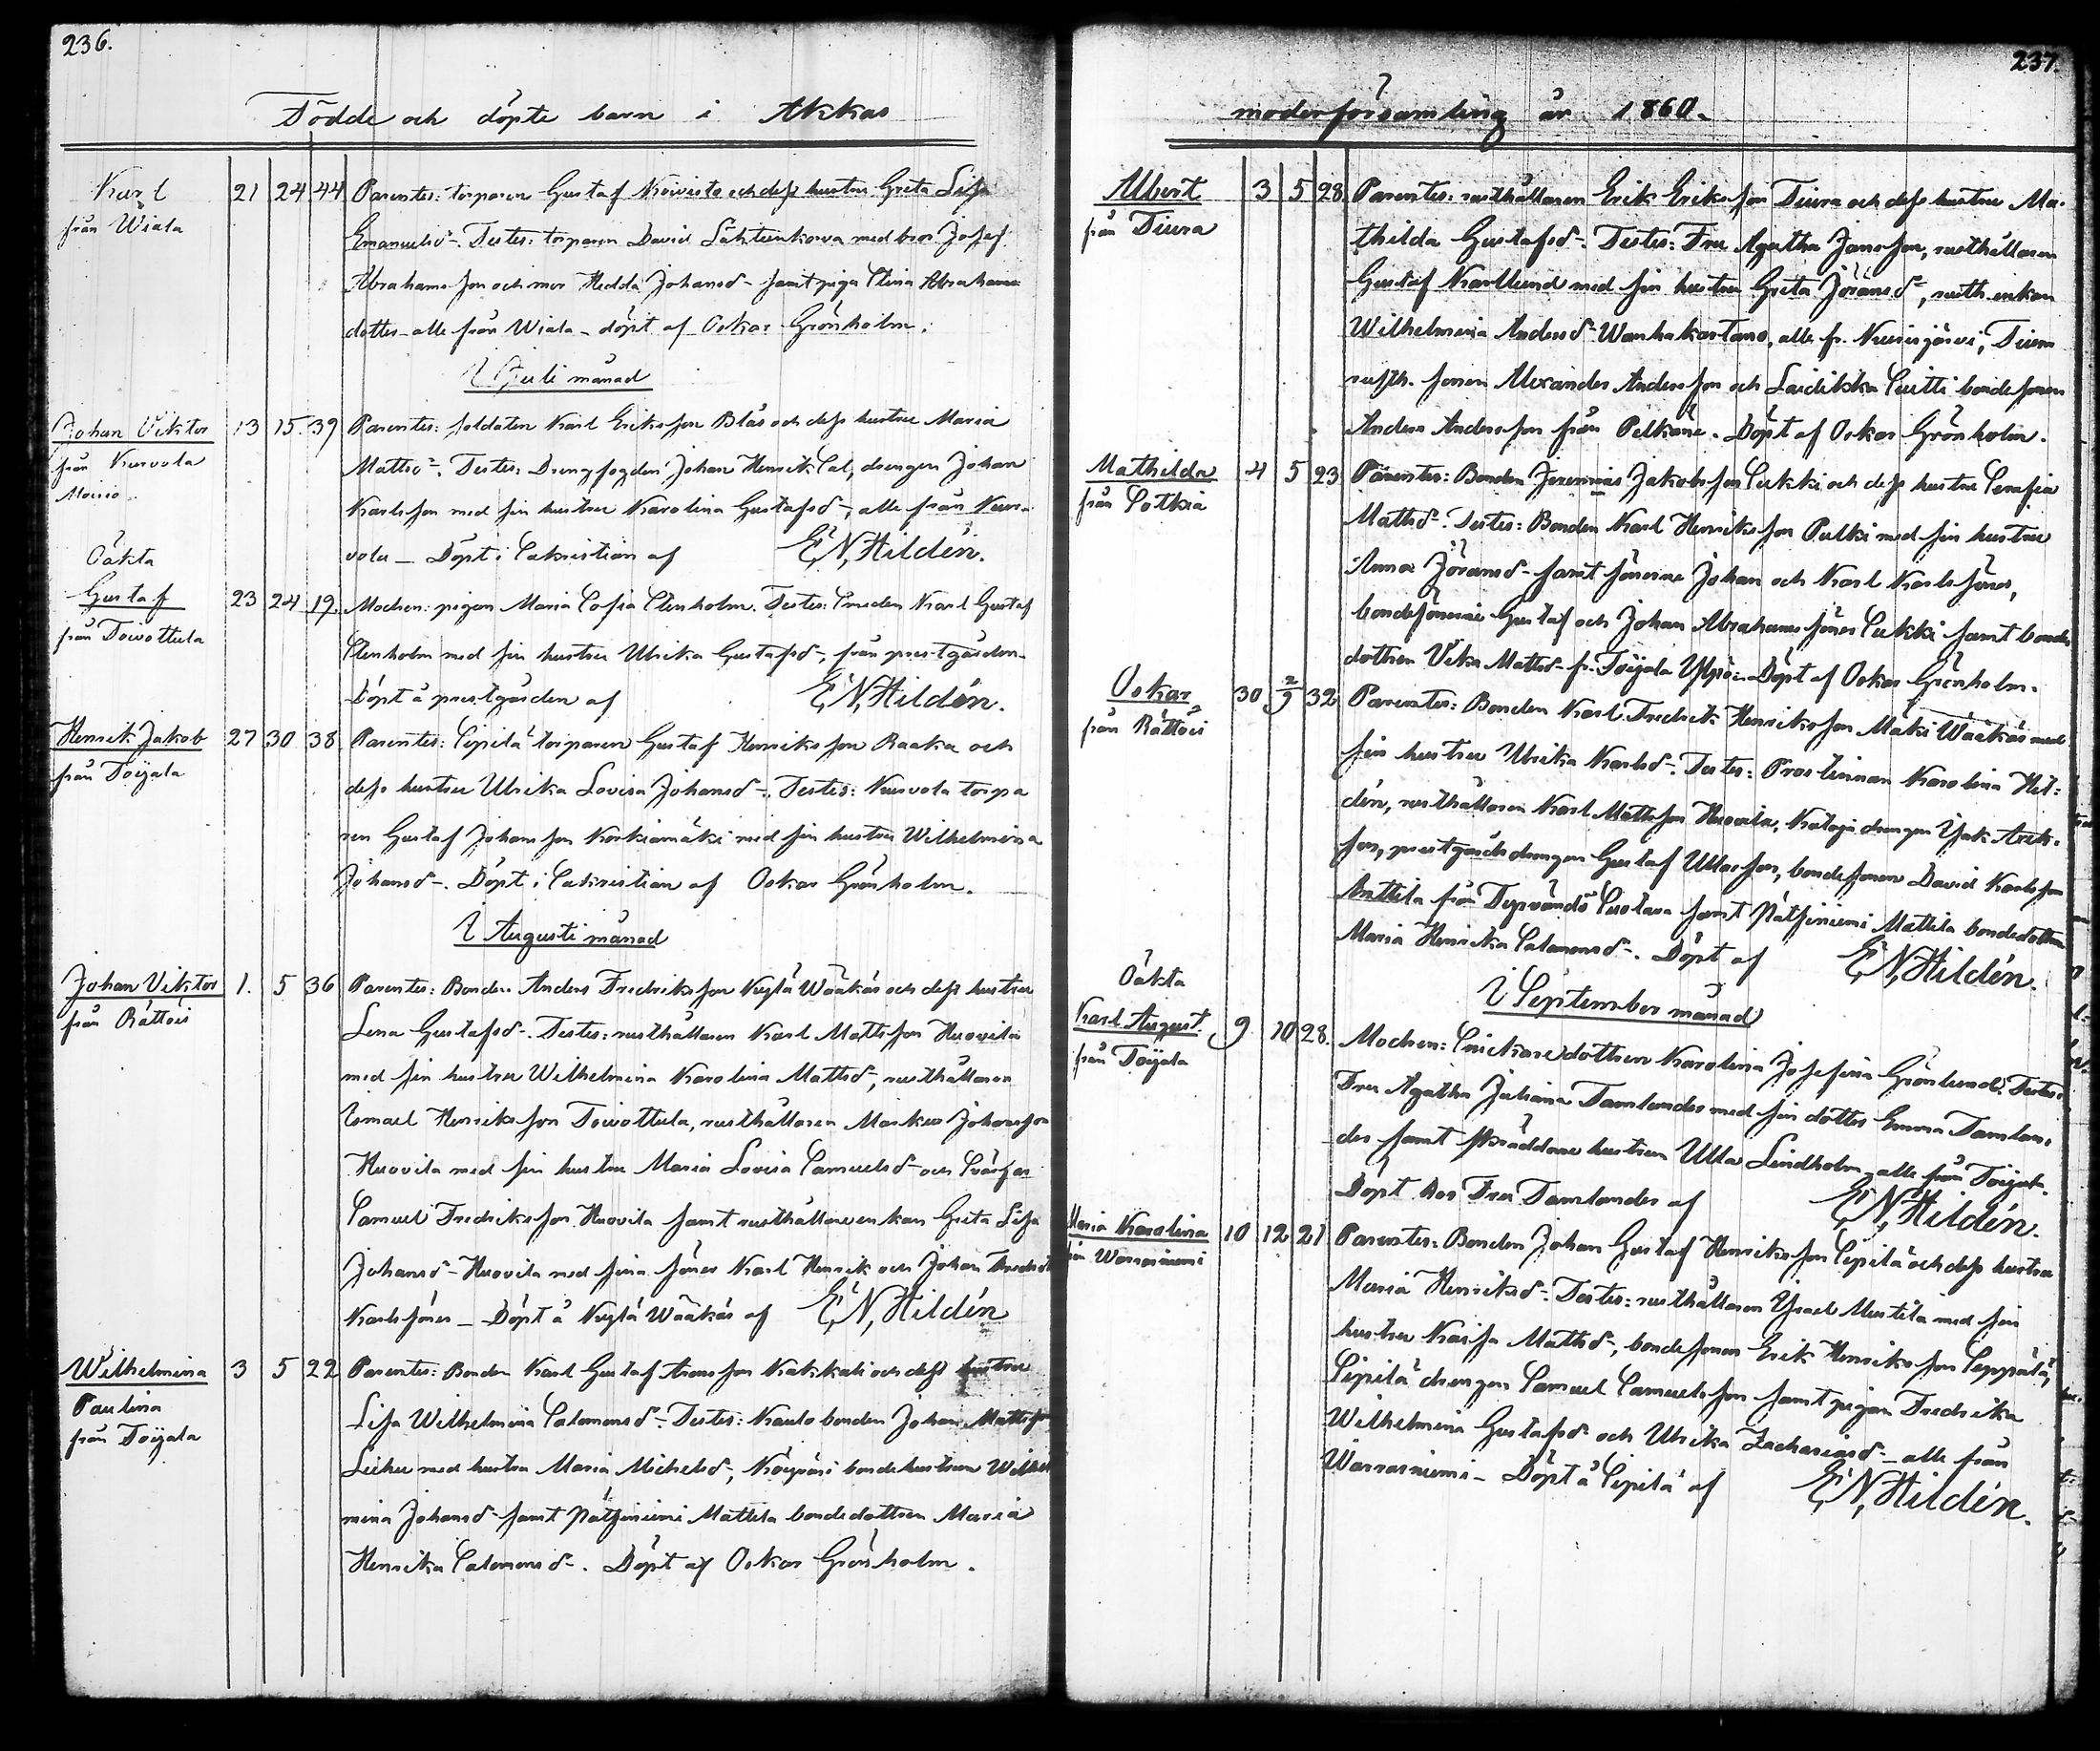 236.
Födde och döpte barn i Akkas
Karl
från Wiala
21 24 44 Parentes: torparen Gustaf Koivisto och dess hustru Greta Lisa
Emanuelsd-. Testes: torparen David Lähteenkorva med bror Josef
Abrahamsson och mor Hedda Johansd- samt piga Stina Abrahams
dotter alle från Wiala - döpt af Oskar Grönholm.
I Juli månad
Johan Viktor
från Kurvola
Moisio
13 15. 39 Parentes: soldaten Karl Eriksson Blås och dess hustru Maria
Mattsd-. Testes: Drengfogden Johan Henrik Sal, drengen Johan
Karlsson med sin hustru Karolina Gustafsd-, alle från Kurvo
vola - Döpt i Sakristian af E,N,Hildén.
Oäkta
Gustaf
från Toivottula
23 24 19. Modren: pigan Maria Sofia Stenholm. Testes: Smeden Karl Gustaf
Stenholm med sin hustru Ulrika Gustafsd-, från prestgården.
Döpt å prestgården af E,N,Hildén.
Henrik Jakob
från Toijala
27 30 38 Parentes: Sipilä torparen Gustaf Henriksson Raaka och
dess hustru Ulrika Lovisa Johansd-. Testes: Kurvola torpa
ren Gustaf Johansson Korkiamäki med sin hustru Wilhelmina
Johansd-. Döpt i Sakristian af Oskar Grönholm.
I Augusti månad
Johan Viktor
från Rättöis
1. 5 36 Parentes: Bonden Anders Fredriksson Kylä Wääkäs och dess hustru
Lena Gustafsd-. Testes: rusthållaren Karl Mattsson Huovila
med sin hustru Wilhelmina Karolina Mattsd-, rusthållaren
Ismael Henriksson Toivottula, rusthållaren Markus Johansson
Huovila med sin hustru Maria Lovisa Samuelsd- och Svärfar
Samuel Fredriksson Huovila samt rusthållareenkan Greta Lisa
Johansd- Huovila med sina söner Karl Henrik och Johan Fredrik
Karlssöner - Döpt å Kylä Wääkäs af E,N,Hildén
Wilhelmina
Paulina
från Toijala
3 5 22 Parentes: Bonden Karl Gustaf Aronsson Kakkali och dess hustru
Lisa Wilhelmina Salomonsd-. Testes: Kaulo bonden Johan Mattsson
med hustru Maria Michelsd-, bondehustrun Wilhel
mina Johansd- samt Nätsiniemi Mattila bondedottren Maria
Henrika Salomonsd-. Döpt af Oskar Grönholm.
237.
moderförsamling år 1860.
Albert
från Diura
3 5 28 Parentes: rusthållaren Erik Eriksson Diura och dess hustru Ma-
thilda Gustafsd-. Testes: Fru Agatha Jansson, rusthållaren
Gustaf Karllund med sin hustru Greta Jöransd-, rusth. enkan
Wilhelmina Andersd- Wanhakartano, alle fr. Kurisjärvi, Diura
rusth. sonen Alexander Andersson och Laidikka Suitti bondesonen
Anders Andersson från Pelkäne. Döpt af Oskar Grönholm.
Mathilda
från Sotkia
4 5 23 Parentes: Bonden Jeremias Jakobsson Sukki och dess hustru Serafia
Mattsd-. Testes: Bonden Karl Henriksson Pulki med sin hustru
Anna Jöransd- samt sönerne Johan och Karl Karlssöner,
bondesönerne Gustaf och Johan Abrahamssöner Sukki samt bonde
dottren Vika Mattsd- fr. Toijala Uppo. Döpt af Oskar Grönholm.
Oskar
från Rättöis
30 2/9 32 Parentes: Bonden Karl Fredrik Henriksson Mäki Wääkäs med
sin hustru Ulrika Karlsd-. Testes: Prostinnan Karolina Hil-
dén, rusthållaren Karl Mattsson Huovila, drengen Isak
son, prestgårdsdrengen Gustaf Ullasson, bondesonen David Karlsson
Anttila från Tyrvändö Suotava samt Nätsiniemi Mattila bondedottren
Maria Henrika Salomonsd-. Döpt af E,N,Hildén.
I September månad
Oäkta
Karl August
från Toijala
9 10 28. Modren: Snickaredottren Karolina Josefina Grönlund. Testes:
Fru Agatha Juliana Tamlander med sin dotter Emma Tamlan-
der samt skräddare hustrun Ulla Lindholm, alle från Toijala.
Döpt hos Fru Tamlander af E,N,Hildén.
Maria Karolina
från Warrasniemi
10 12 21 Parentes: Bonden Johan Gustaf Henriksson Sipilä och dess hustru
Maria Henriksd-. Testes: rusthållaren Israel Mustila med sin
hustru Kaisa Mattsd-, bondesonen Erik Henriksson Seppälä,
Sipilä drengen Samuel Samuelsson samt pigan Fredrika
Wilhelmina Gustafsd- och Ulrika Zachariasd- alle från
Warrasniemi - Döpt å Sipilä af E,N,Hildén.